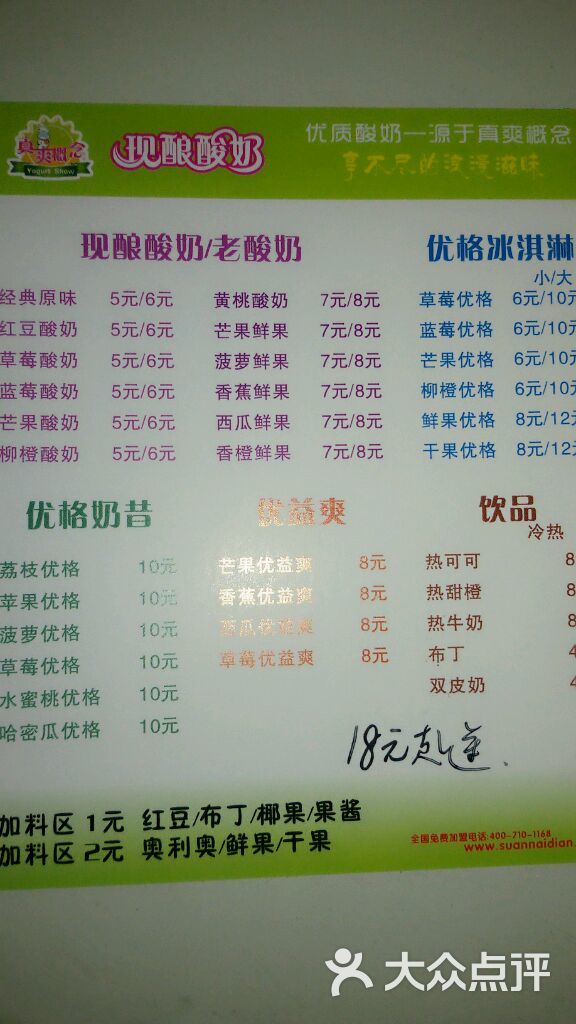 真爽概念
Yogurt Show
现酿酸奶
优质酸奶—源于真爽概念
享不尽的浪漫滋味
现酿酸奶/老酸奶
经典原味 5元/6元
红豆酸奶 5元/6元
草莓酸奶 5元/6元
蓝莓酸奶 5元/6元
芒果酸奶 5元/6元
柳橙酸奶 5元/6元
黄桃酸奶 7元/8元
芒果鲜果 7元/8元
菠萝鲜果 7元/8元
香蕉鲜果 7元/8元
西瓜鲜果 7元/8元
香橙鲜果 7元/8元
优格冰淇淋
小/大
草莓优格 6元/10元
蓝莓优格 6元/10元
芒果优格 6元/10元
柳橙优格 6元/10元
鲜果优格 8元/12元
干果优格 8元/12元
优格奶昔
荔枝优格 10元
苹果优格 10元
菠萝优格 10元
草莓优格 10元
水蜜桃优格 10元
哈密瓜优格 10元
优益爽
芒果优益爽 8元
香蕉优益爽 8元
西瓜优益爽 8元
草莓优益爽 8元
饮品
冷热
热可可 8
热甜橙 8
热牛奶 8
布丁 4
双皮奶 4
18元起送.
加料区 1元 红豆/布丁/椰果/果酱
加料区 2元 奥利奥/鲜果/干果
全国免费加盟电话:400-710-1168
www.suannaidian.
大众点评